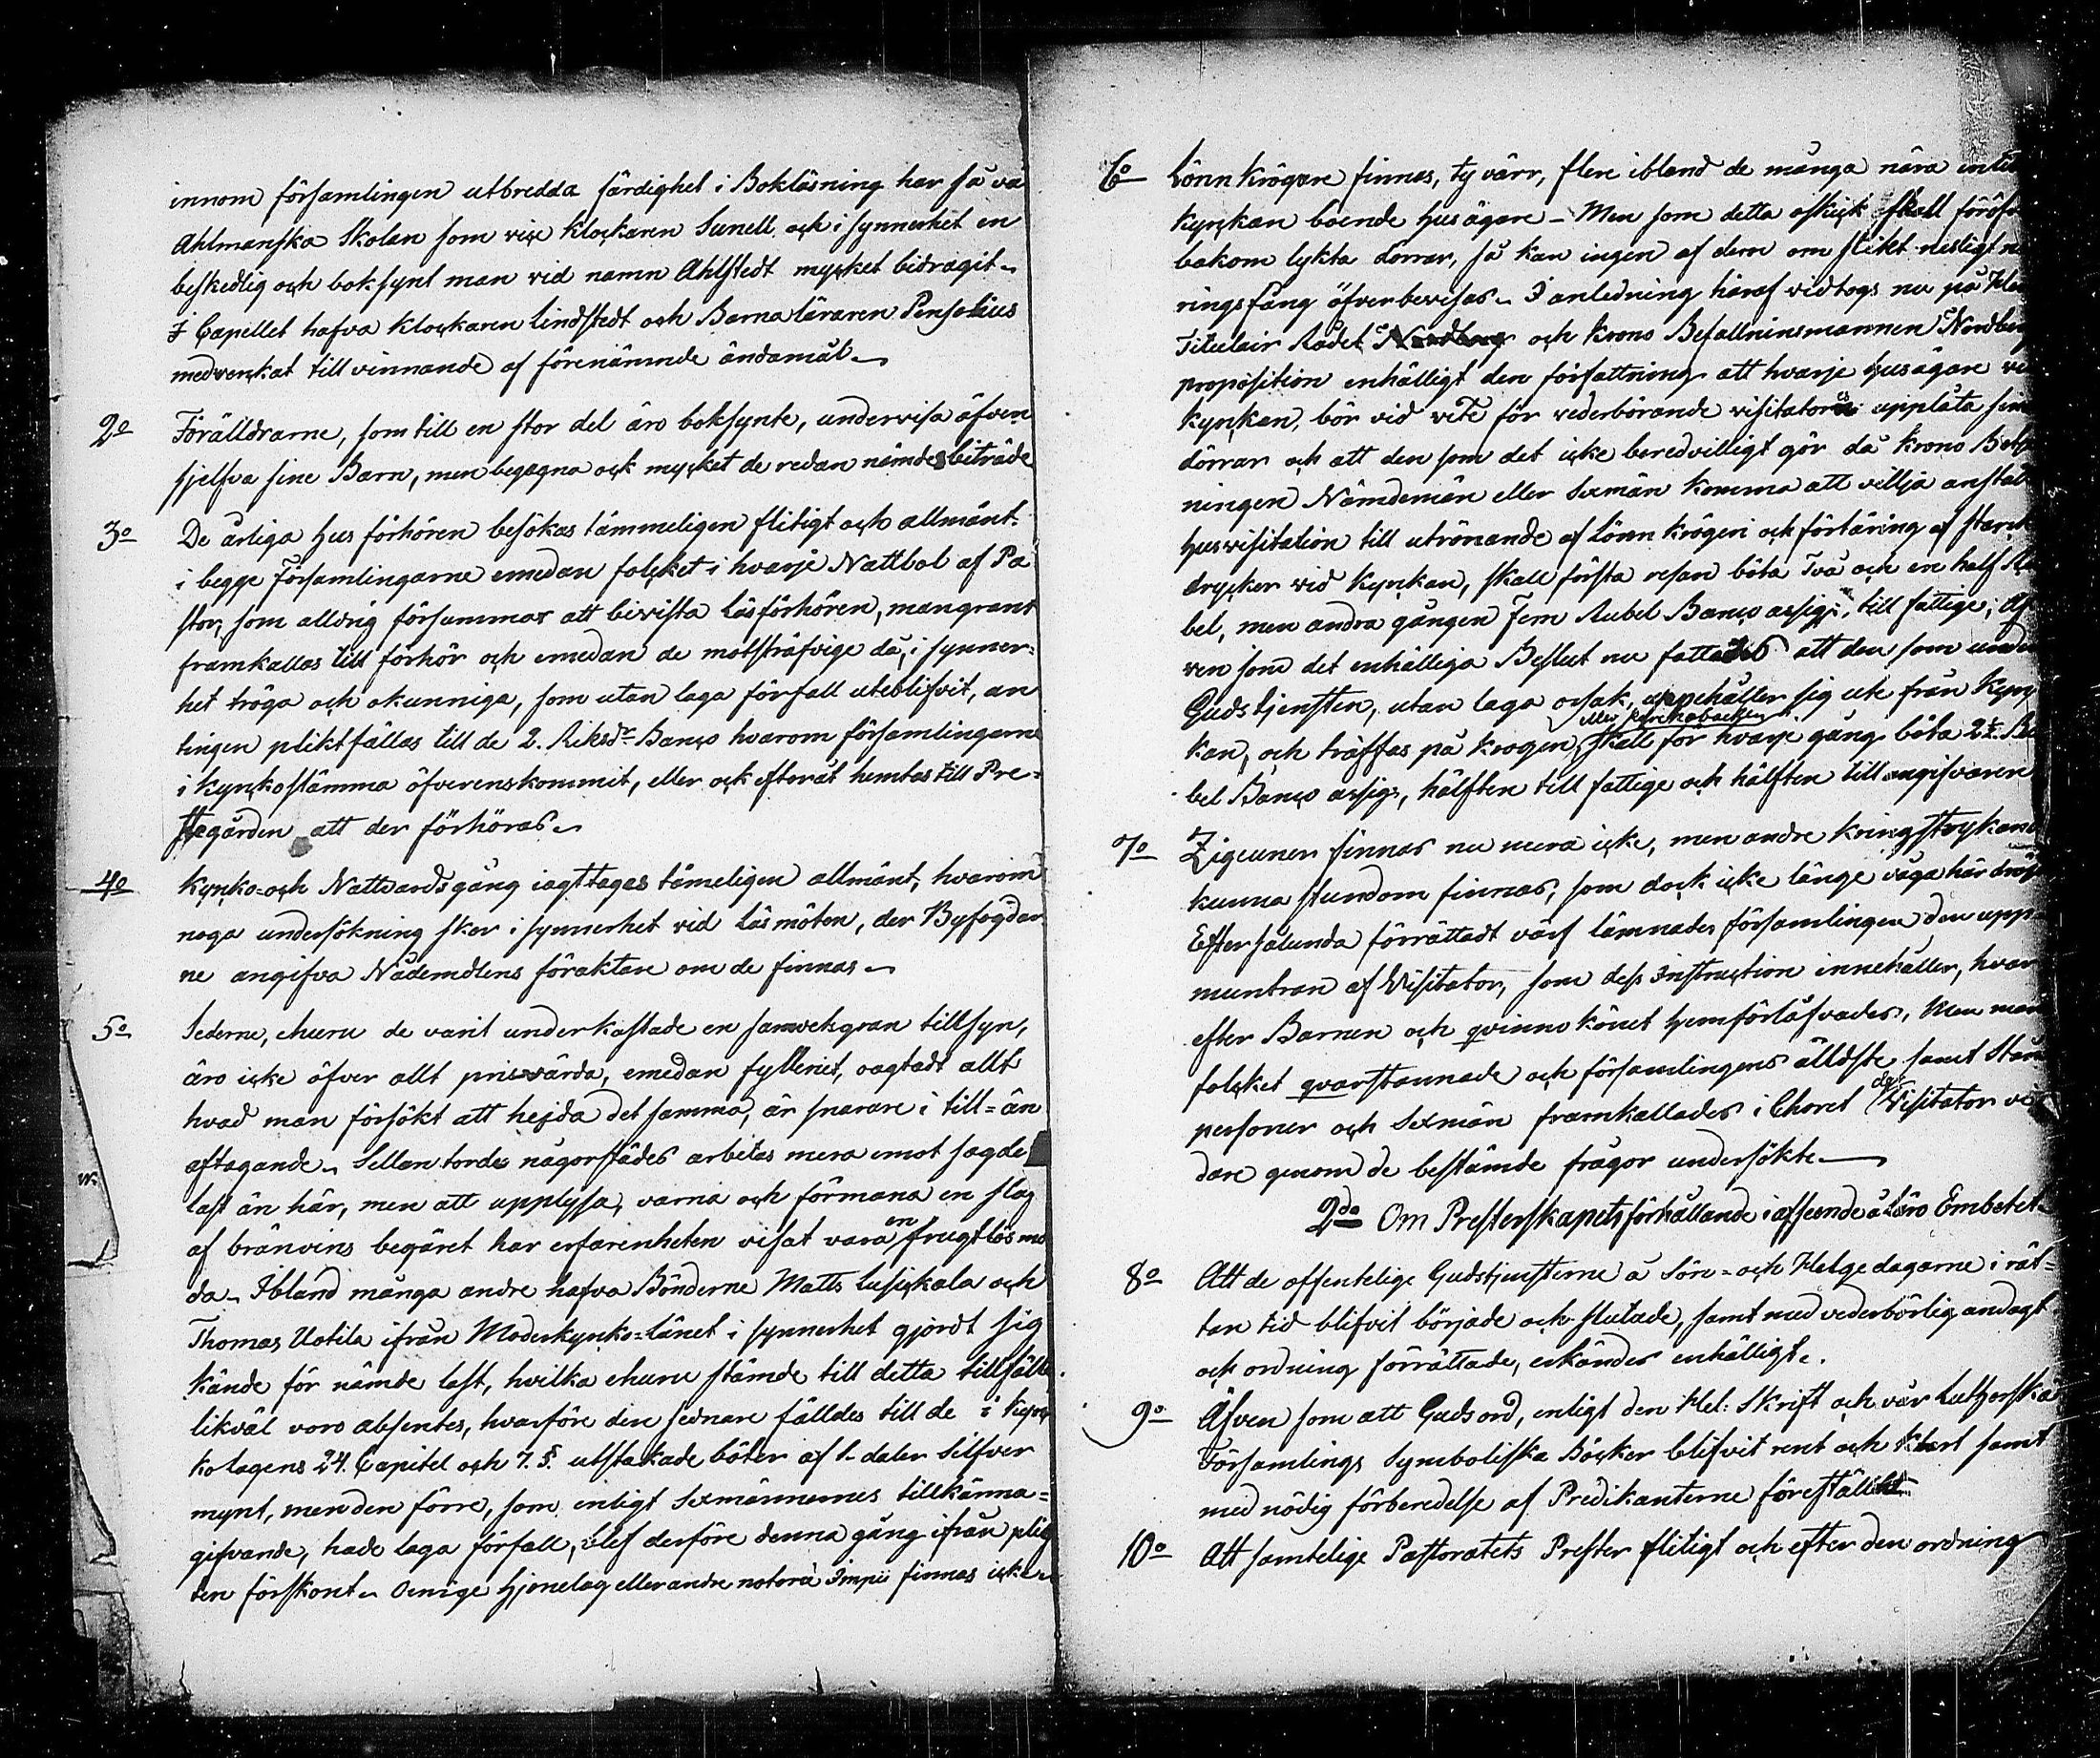 innom församlingen utbredda färdighet i Bokläsning har så vä
Ahlmanska Skolan som vice Klockaren Sunell och i synnerhet en
beskedlig och boksynt man vid namn Ahlstedt mycket bidragit.
I Capellet hafva Klockaren Lindstedt och Barnaläraren Pensolius
medverkat till vinnande af förenämnde ändamål.
2o Förälldrarne, som till en stor del äro boksynte, undervisa äfven
sjelfva sine Barn, men begagna ock mycket de redan nämdes biträde
3o De årliga Hus förhören besökas tämmeligen flitigt och allmänt
i begge Församlingarne emedan folcket i hvarje Nattbol af Pa
stor, som alldrig försummar att bevista Läsförhören, mangrant
framkallas till förhör och emedan de motsträfvige då, i synner=
het tröga och okunniga, som utan laga förfall uteblifvit, an
tingen pliktfällas till de 2. Riksdr Banco hvarom församlingarne
i kyrkostämma öfverenskommit, eller ock efteråt hemtas till Pre=
stegården att der förhöras.
4o Kyrko= och Nattvardsgång iagttages tämeligen allmänt, hvarom
noga undersökning sker i synnerhet vid Läsmöten, der Byfogdar
ne angifva Nådemedlens föraktare om de finnas.
5o Sederne, ehuru de varit underkastade en samvetsgran tillsyn,
äro icke öfver allt prisvärda, emedan fylleriet, oagtadt allt
hvad man försökt att hejda det samma, är snarare i till= än
aftagande. Sellan torde någorstädes arbetas mera emot sagde
last än här, men att upplysa, varna och förmana en slaf
af bränvins begäret har erfarenheten visat vara en frugtlös mö
da. Ibland många andre hafva Bönderne Matts Lusickala och
Thomas Uotila ifrån Moderkyrko=länet i synnerhet gjordt sig
kände för nämde last, hvilka ehuru stämde till detta tillfälle
likväl voro absentes, hvarföre den sednare fälldes till de i kyr
kolagens 24. Capitel och 7. §. utstakade böter af 1. daler Silfver
mynt, men den förre, som enligt Sexmännernes tillkänna=
gifvande, hade laga förfall, blef derföre denna gång ifrån plig
ten förskont. Oenige Hjonelag eller andre notorie Impii finnas icke.
6o Lönnkrögare finnas, ty värr, flere ibland de många nära intil
kyrckan boende Husägare. Men som detta oskick skall föröfv
bakom lykta dörrar, så kan ingen af dem om slikt nesligt nä
ringsfång öfverbevisas. I anledning häraf vidtogs nu på
Titulair Rådets Nordberg och Krono Befallninsmannen Nordberg
proposition enhälligt den författning att hvarje Husägare vid
kyrckan, bör vid vite för vederbörande visitatorer upplåta sina
dörrar och att den som det icke beredvilligt gör då Krono Betje
ningen Nämdemän eller Sexmän komma att villja anställ
Husvisitation till utrönande af Lönnkrögeri och förtäring af starck
drycker vid kyrckan, skall första resan böta Två och en half Ru
bel, men andra gången Fem Rubel Banco assign. till fattige; Äf
ven som det enhälliga Beslut nu fattades att den som under
Gudstjensten, utan laga orsak, uppehåller sig ute från Kyr
kan, och träffas på krogen, eller kyrckobacken skall för hvarje gång böta 2 1/2 Ru
bel Banco assign, hälften till fattige och hälften till angifvaren
7o Zigeuner finnas nu mera icke, men andre kringstrykande
kunna stundom finnas, som dock icke länge våga här dröj
Efter sålunda förrättadt värf lämnades församlingen den upp
muntran af Visitator, som dess Instruction innehåller, hvar
efter Barnen och qvinno könet hemförläfvades, Men man
folcket qvarstannade och församlingens älldste samt Stån
personer och Sexmän framkallades i Choret der Visitator vi
dare genom de bestämde frågor undersökte
2do Om Presterskapets förhållande i afseende å Läro Embetet.
8o Att de offentelige Gudstjensterne å Sön= och Helgedagarne i rät=
tan tid blifvit började och slutade, samt med vederbörlig andagt
och ordning förrättade, erkändes enhälligt.
9o Äfven som att Guds ord, enligt den Hel: Skrift och vår Lutherska
Församlings Symboliska Böcker blifvit rent och klart samt
med nödig förberedelse af Predikanterne förestäldt
10o Att samtelige Pastoratets Prester flitigt och efter den ordning